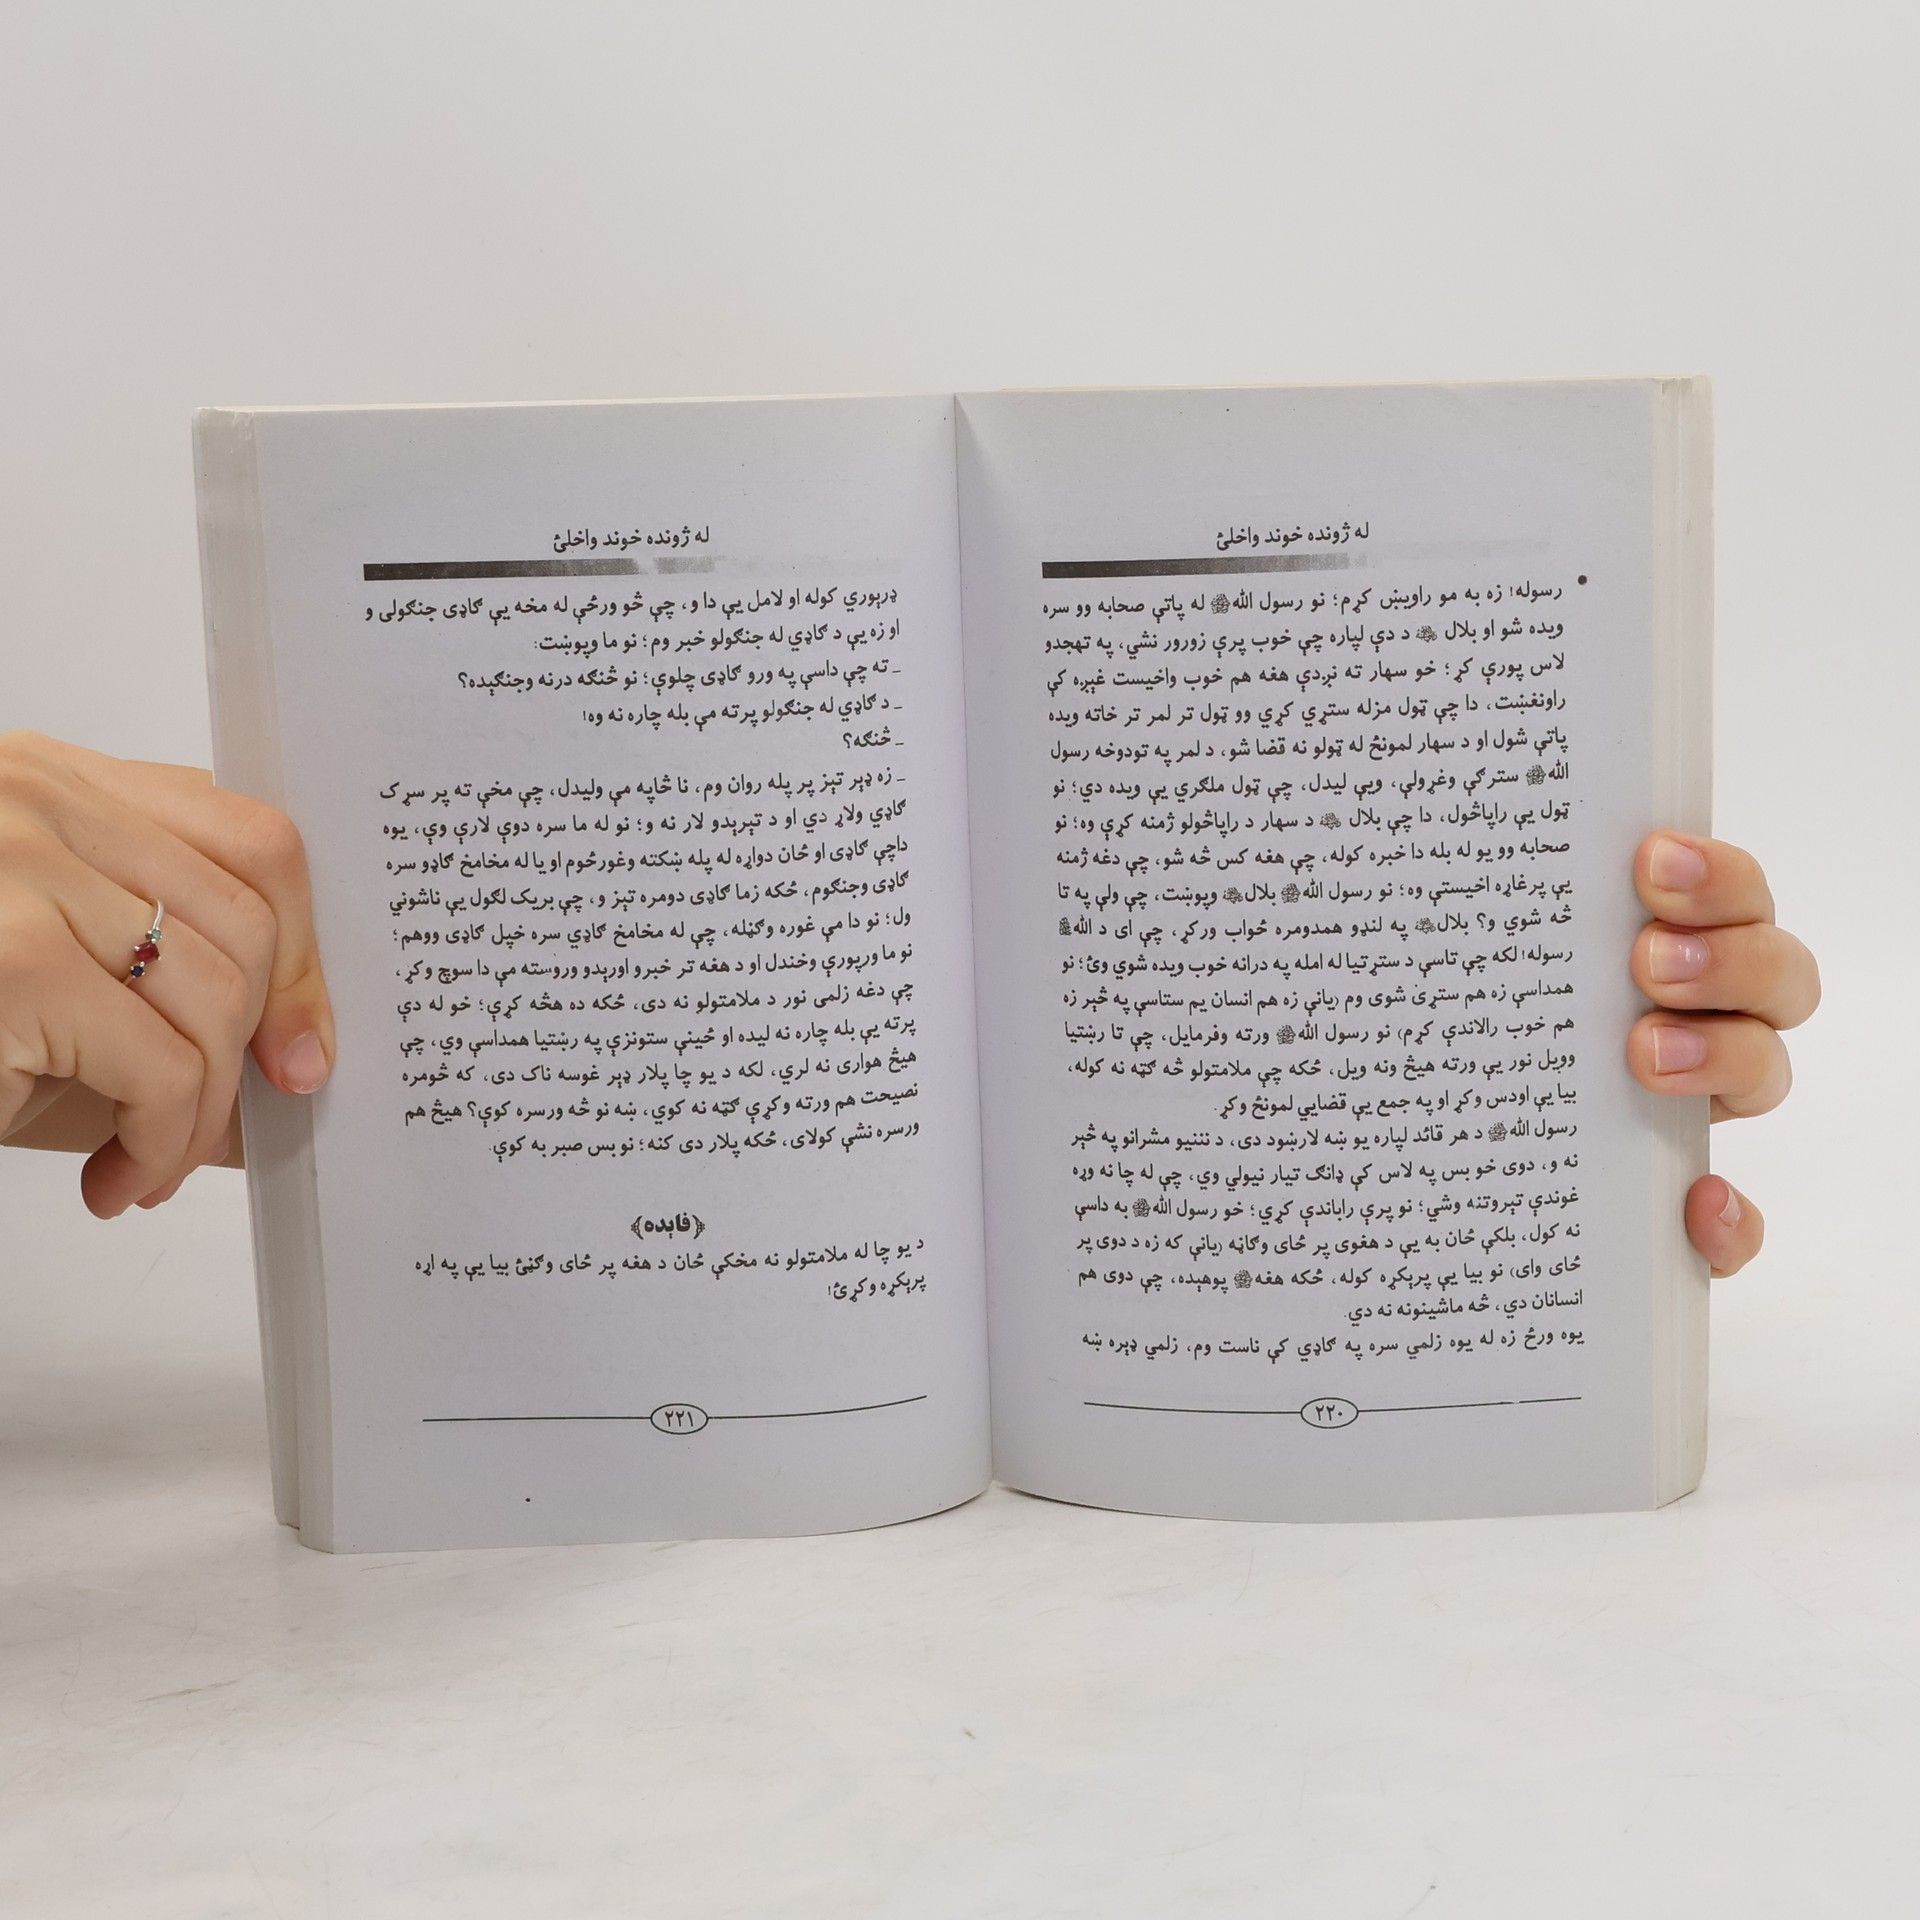 له ژونده خوند واخلئ
رسوله! زه به مو راويښ کړم؛ نو رسول الله ﷺ له پاتې صحابه وو سره
ويده شو او بلال د دې لپاره چې خوب پرې زورور نشي، په تهجدو
لاس پورې کړ؛ خو سهار ته نږدې هغه هم خوب واخيست غېږه کې
راونغښت، دا چې ټول مزله ستړي کړي وو ټول تر لمر تر خاته ويده
پاتې شول او د سهار لمونځ له ټولو نه قضا شو، د لمر په تودوخه رسول
الله ﷺ سترګې وغړولې، ويې ليدل، چې ټول ملګري يې ويده دي؛ نو
ټول يې راپاڅول، دا چې بلال د سهار د راپاڅولو ژمنه کړې وه؛ نو
صحابه وو يو له بله دا خبره کوله، چې هغه کس څه شو، چې دغه ژمنه
يې پرغاړه اخيستې وه؛ نو رسول الله ﷺ بلال وپوښت، چې ولې په تا
څه شوي و؟ بلال په لنډو همدومره ځواب ورکړ، چې ای د الله ﷺ
رسوله! لکه چې تاسې د ستړتيا له امله په درانه خوب ويده شوي وئ؛ نو
همداسې زه هم ستړی شوی وم (يانې زه هم انسان يم ستاسې په څېر زه
هم خوب رالاندې کړم) نو رسول الله ﷺ ورته وفرمايل، چې تا رښتيا
وويل نور يې ورته هيڅ ونه ويل، ځکه چې ملامتولو څه ګټه نه کوله،
بيا يې اودس وکړ او په جمع يې قضايي لمونځ وکړ.
رسول الله ﷺ د هر قائد لپاره يو ښه لارښود دی، د نننيو مشرانو په څېر
نه و، دوی خو بس په لاس کې ډانګ تيار نيولي وي، چې له چا نه وړه
غوندې تېروتنه وشي؛ نو پرې راباندې کړي؛ خو رسول الله ﷺ به داسې
نه کول، بلکې ځان به يې د هغوی پر ځای وګاڼه (يانې که زه د دوی پر
ځای وای) نو بيا يې پرېکړه کوله، ځکه هغه ﷺ پوهېده، چې دوی هم
انسانان دي، څه ماشينونه نه دي.
يوه ورځ زه له يوه زلمي سره په ګاډي کې ناست وم، زلمي ډېره ښه
۲۲۰
له ژونده خوند واخلئ
ډرېوري کوله او لامل يې دا و، چې څو ورځې له مخه يې ګاډی جنګولی و
او زه يې د ګاډي له جنګولو خبر وم؛ نو ما وپوښت:
_ ته چې داسې په ورو ګاډی چلوې؛ نو څنګه درنه وجنګېده؟
_ د ګاډي له جنګولو پرته مې بله چاره نه وه!
_ څنګه؟
_ زه ډېر تېز پر پله روان وم، نا څاپه مې وليدل، چې مخې ته پر سړک
ګاډي ولاړ دي او د تېرېدو لار نه و؛ نو له ما سره دوې لارې وې، يوه
داچې ګاډی او ځان دواړه له پله ښکته وغورځوم او يا له مخامخ ګاډو سره
ګاډی وجنګوم، ځکه زما ګاډی دومره تېز و، چې بريک لګول يې ناشوني
ول؛ نو دا مې غوره وګڼله، چې له مخامخ ګاډي سره خپل ګاډی ووهم؛
نو ما ورپورې وخندل او د هغه تر خبرو اورېدو وروسته مې دا سوچ وکړ،
چې دغه زلمی نور د ملامتولو نه دی، ځکه ده هڅه کړې؛ خو له دې
پرته يې بله چاره نه ليده او ځينې ستونزې په رښتيا همداسې وي، چې
هيڅ هواری نه لري، لکه د يو چا پلار ډېر غوسه ناک دی، که څومره
نصيحت هم ورته وکړې ګټه نه کوي، ښه نو څه ورسره کوې؟ هيڅ هم
ورسره نشې کولای، ځکه پلار دی کنه؛ نو بس صبر به کوې.
﴿فايده﴾
د يو چا له ملامتولو نه مخکې ځان د هغه پر ځای وګڼئ بيا يې په اړه
پرېکړه وکړئ!
۲۲۱